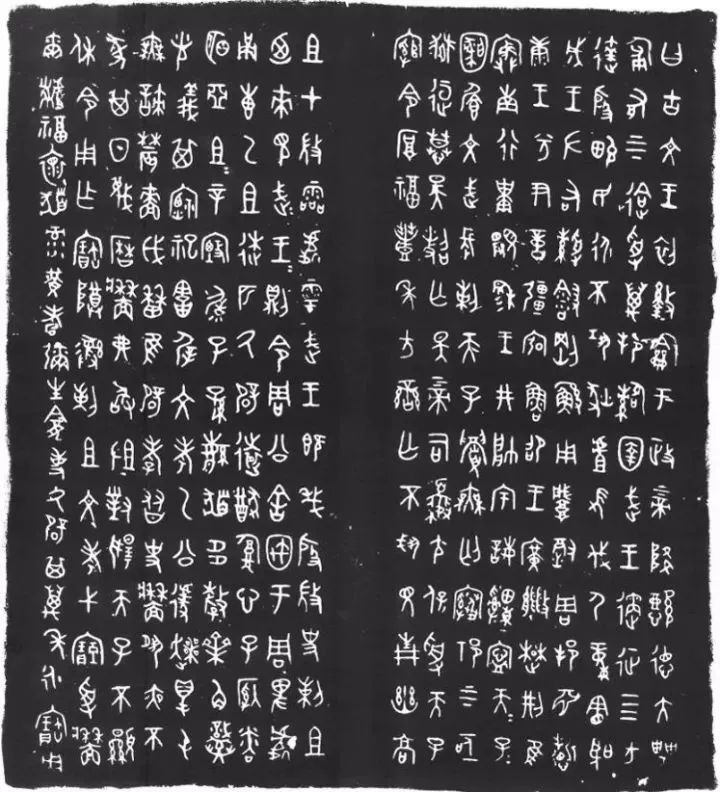 曰古文王初盭龢于政上帝降懿德大甹
匍有上下迨受萬邦圉武王遹征四方
達殷畯民永不巩狄虘伐夷童憲聖
成王左右綬剛鯀用肇徹周邦淵哲
康王兮尹億疆宖魯卲王廣楚荊隹
狩南行祗覭穆王井帥宇誨申寧天子
天子文武長剌天子眉無匄祁上下亟
獄慕昊照亡斁上帝司夒尢保受天子
綰令厚福豐年方蠻亡不見青幽高
且才霝處雩武王既殷史剌且
廼來見武王武王則令周公舍于周卑處
甬惠乙且匹厥辟遠猷腹心子粦
明亞且且辛毓子孫繁多釐齊角熾
光義其禋祀遲文考乙公遽爽得
屯無諫農穡戉曆隹辟孝友史墻夙夜不
墜其日蔑曆墻弗敢沮對揚天子不顯
休令用乍寶尊彝剌且文考弋受墻
爾福懷祿黃耇彌生龕事厥辟其萬年永寶用